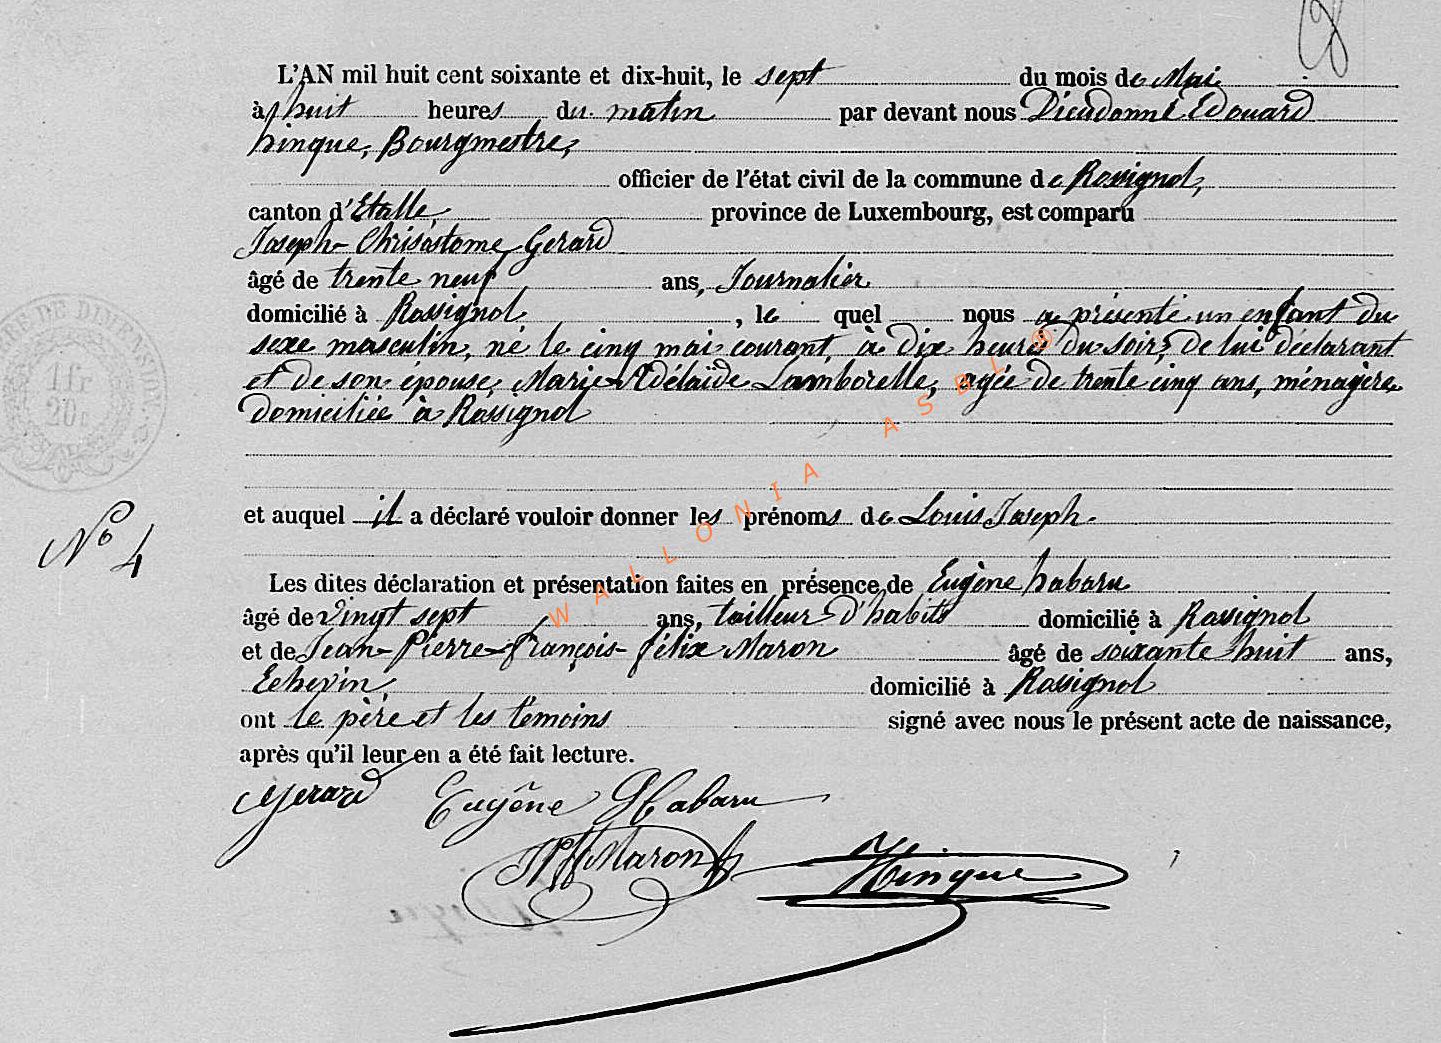 L'AN mil huit cent soixante et dix-huit, le sept du mois de Mai
à huit heures du matin par devant nous Dieudonné Edouard
hinque, Bourgmestre,
officier de l'état civil de la commune de Rossignol,
canton d'Etalle, province de Luxembourg, est comparu
Joseph-Chrisostome Gerard
âgé de trente neuf ans, Journalier
domicilié à Rossignol, le quel nous a présenté un enfant du
sexe masculin, né le cinq mai courant, à dix heures du soir, de lui déclarant
et de son épouse, Marie-Adélaïde Lamborelle, agée de trente cinq ans, ménagère
domiciliée à Rossignol
et auquel il a déclaré vouloir donner les prénoms de Louis Joseph.
No 4
Les dites déclaration et présentation faites en présence de Eugène habaru
âgé de vingt sept ans, tailleur d'habits domicilié à Rossignol
et de Jean-Pierre-françois-félix Maron âgé de soixante huit ans,
Echevin, domicilié à Rossignol
ont le père et les témoins signé avec nous le présent acte de naissance,
après qu'il leur en a été fait lecture.
Gerard Eugêne Habaru
JPff Maron Hinque
1 fr
20 c
WALLONIA ASBL ®